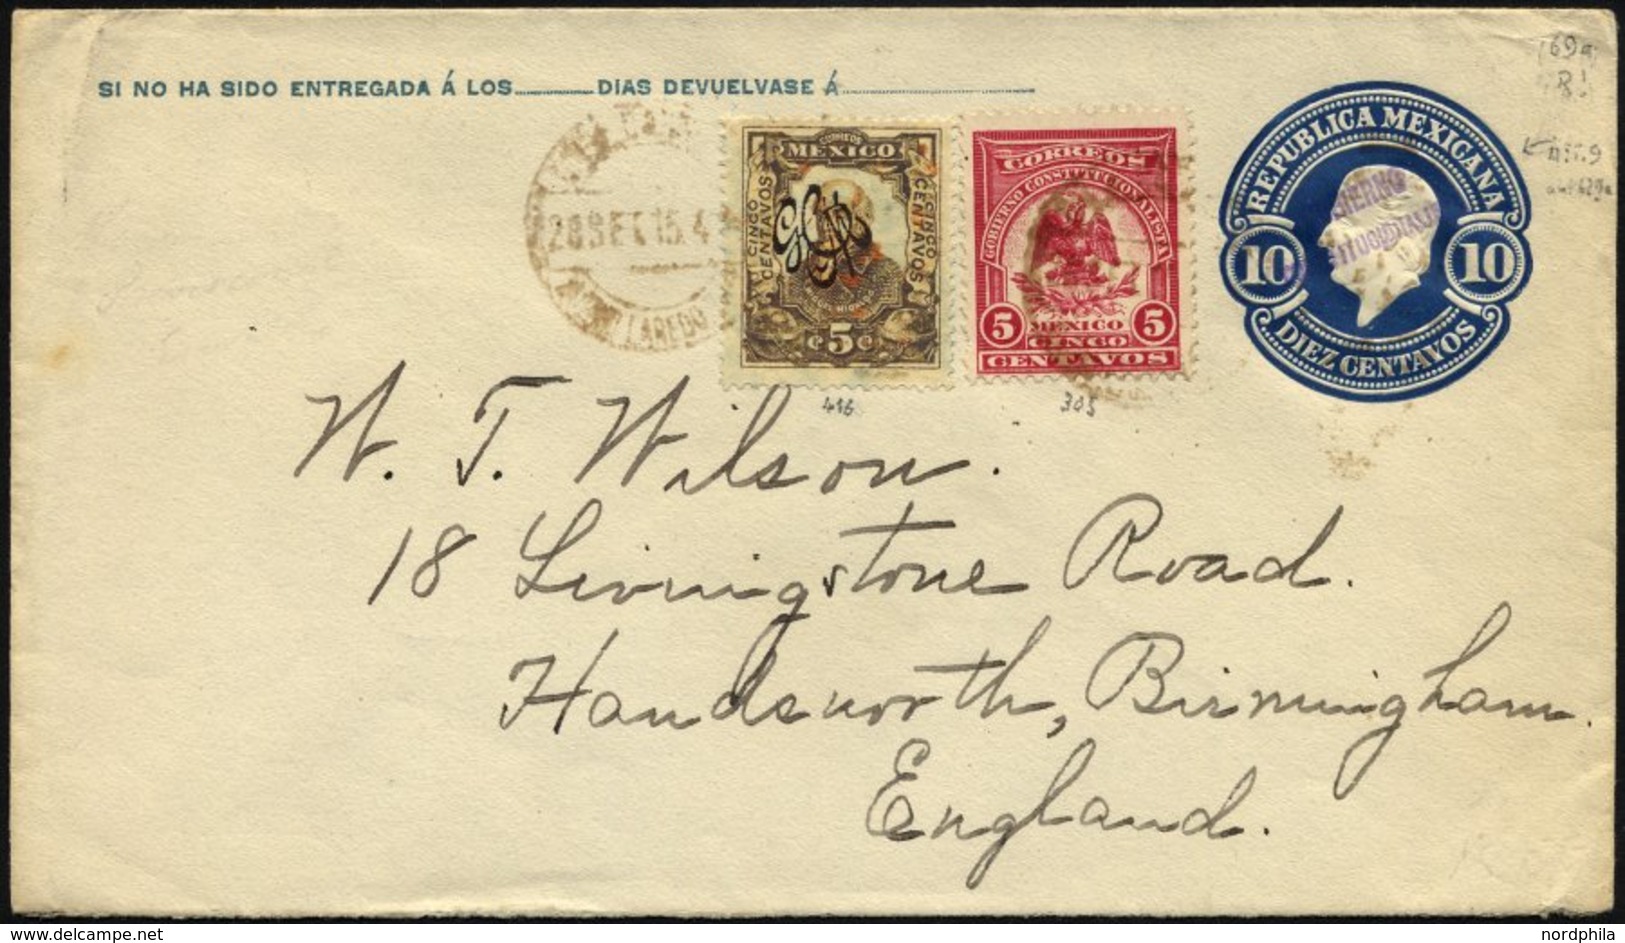 SI NO HA SIDO ENTREGADA Á LOS DIAS DEVUELVASE Á
28 SET 15. 4
LAREDO
CORREOS
MEXICO
CINCO CENTAVOS
CINCO CENTAVOS
¢5¢
416
CORREOS
GOBIERNO CONSTITUCIONALISTA
5 MEXICO 5
CINCO
CENTAVOS
305
REPUBLICA MEXICANA
10 10
DIEZ CENTAVOS
W. T. Wilson.
18 Livingstone Road.
Handsworth, Birmingham.
England.
www.delcampe.net
nordphila